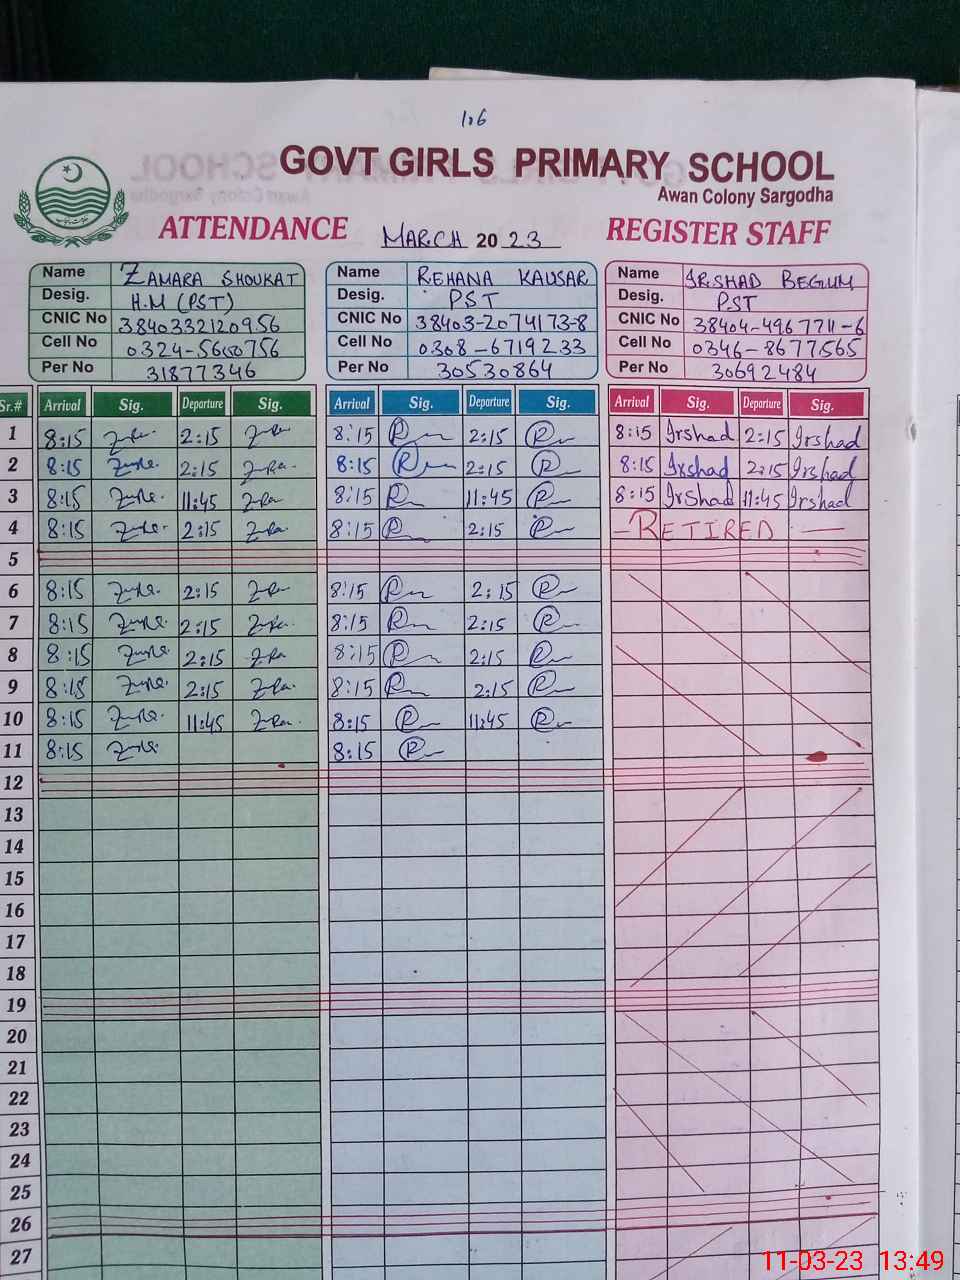 106
GOVT GIRLS PRIMARY SCHOOL
Awan Colony Sargodha
ATTENDANCE MARCH 2023 REGISTER STAFF
Name ZAMARA SHOUKAT Name REHANA KAUSAR Name IRSHAD BEGUM
Desig. H.M (PST) Desig. PST Desig. PST
CNIC No 3840332120956 CNIC No 38403-2074173-8 CNIC No 38404-4967711-6
Cell No 0324-5650756 Cell No 0308-6719233 Cell No 0346-8677565
Per No 31877346 Per No 30530864 Per No 30692484
Sr.# Arrival Sig. Departure Sig. Arrival Sig. Departure Sig. Arrival Sig. Departure Sig.
1 8:15 2:15 8:15 2:15 8:15 Irshad 2:15 Irshad
2 8:15 2:15 8:15 2:15 8:15 Irshad 2:15 Irshad
3 8:15 11:45 8:15 11:45 8:15 Irshad 11:45 Irshad
4 8:15 2:15 8:15 2:15 - RETIRED -
5
6 8:15 2:15 8:15 2:15
7 8:15 2:15 8:15 2:15
8 8:15 2:15 8:15 2:15
9 8:15 2:15 8:15 2:15
10 8:15 11:45 8:15 11:45
11 8:15 8:15
12
13
14
15
16
17
18
19
20
21
22
23
24
25
26
27
11-03-23 13:49